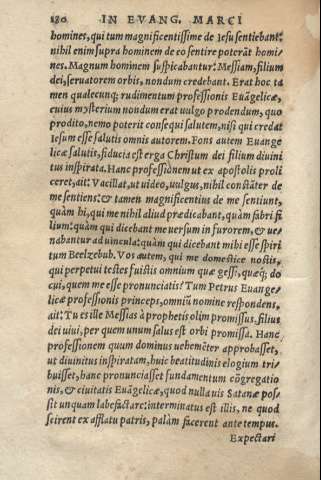 180 IN EVANG. MARCI
homines, qui tum magnificentissime de Iesu sentiebant:
nihil enim supra hominem de eo sentire poterãt homi⸗
nes. Magnum hominem suspicabantur: Messiam, filium
dei, seruatorem orbis, nondum credebant. Erat hoc ta
men qualecunq; rudimentum professionis Euãgelicæ,
cuius mysterium nondum erat uulgo prodendum, quo
prodito, nemo poterit consequi salutem, nisi qui credat
Iesum esse salutis omnis autorem. Fons autem Euange
licæ salutis, fiducia est erga Christum dei filium diuini
tus inspirata. Hanc professionem ut ex apostolis proli
ceret, ait: Vacillat, ut uideo, uulgus, nihil constãter de
me sentiens: & tamen magnificentius de me sentiunt,
quàm hi, qui me nihil aliud prædicabant, quàm fabri fi
lium: quàm qui dicebant me uersum in furorem, & ue⸗
nabantur ad uincula: quàm qui dicebant mihi esse spiri
tum Beelzebub. Vos autem, qui me domestice nostis,
qui perpetui testes fuistis omnium quæ gessi, quæq; do
cui, quem me esse pronunciatis? Tum Petrus Euange⸗
licæ professionis princeps, omniũ nomine respondens,
ait: Tu es ille Messias à prophetis olim promissus, filius
dei uiui, per quem unum salus est orbi promissa. Hanc
professionem quum dominus uehemẽter approbasset,
ut diuinitus inspiratam, huic beatitudinis elogium tri⸗
buisset, hanc pronunciasset fundamentum cõgregatio
nis, & ciuitatis Euãgelicæ, quod nulla uis Satanæ pos⸗
sit unquam labefactare: interminatus est illis, ne quod
scirent ex afflatu patris, palàm facerent ante tempus.
Expectari